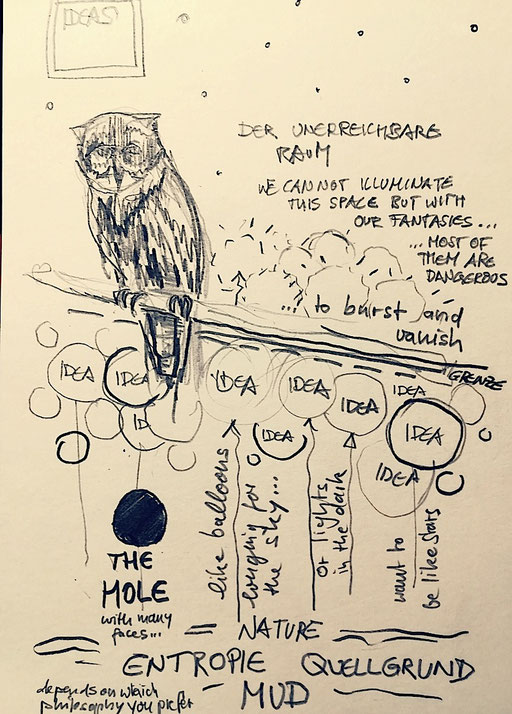 IDEAS
DER UNERREICHBARE
RAUM
WE CAN NOT ILLUMINATE
THIS SPACE BUT WITH
OUR FANTASIES...
... MOST OF
THEM ARE
DANGEROUS
... to burst and
vanish
GRENZE
IDEA
IDEA
ID
IDEA
IDEA
IDEA
IDEA
IDEA
IDEA
IDEA
like balloons
longing for
the sky...
or lights
in the dark
want to
be like stars
THE
HOLE
with many
faces...
NATURE
ENTROPIE QUELLGRUND
MUD
depends on which
philosophy you prefer